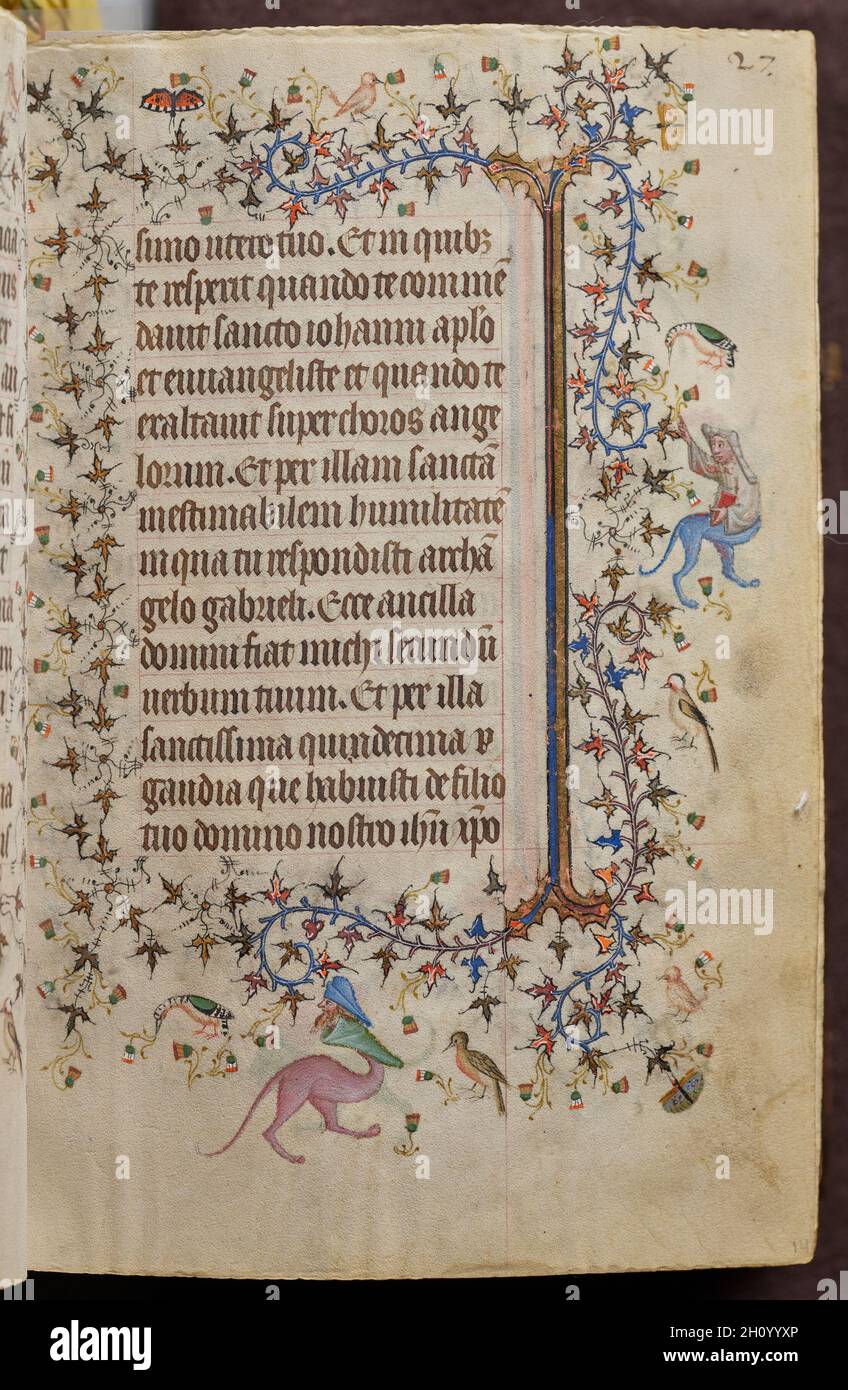 27.
simo utero tuo. Et in quib3
te respexit quando te commē
dauit sancto iohanni aplo
et euuangeliste et quando te
exaltauit super choros ange
lorum. Et per illam sanctā
inestimabilem humilitatē
in qua tu respondisti archā
gelo gabrieli. Ecce ancilla
domini fiat michi secundū
uerbum tuum. Et per illa
sanctissima quindecima
gaudia que habuisti de filio
tuo domino nostro ihū xpo
alamy
Image ID: 2H0YYXP
www.alamy.com